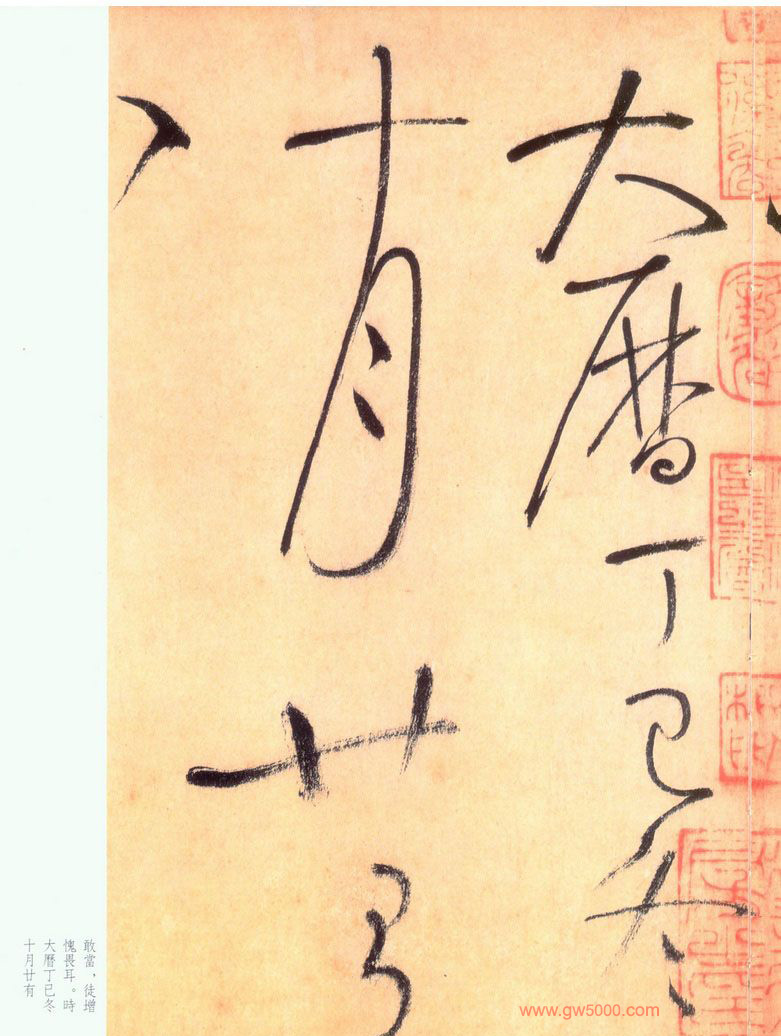 大曆丁巳冬
十月廿有
敢當，徒增
愧畏耳。時
大曆丁巳冬
十月廿有
www.gw5000.com